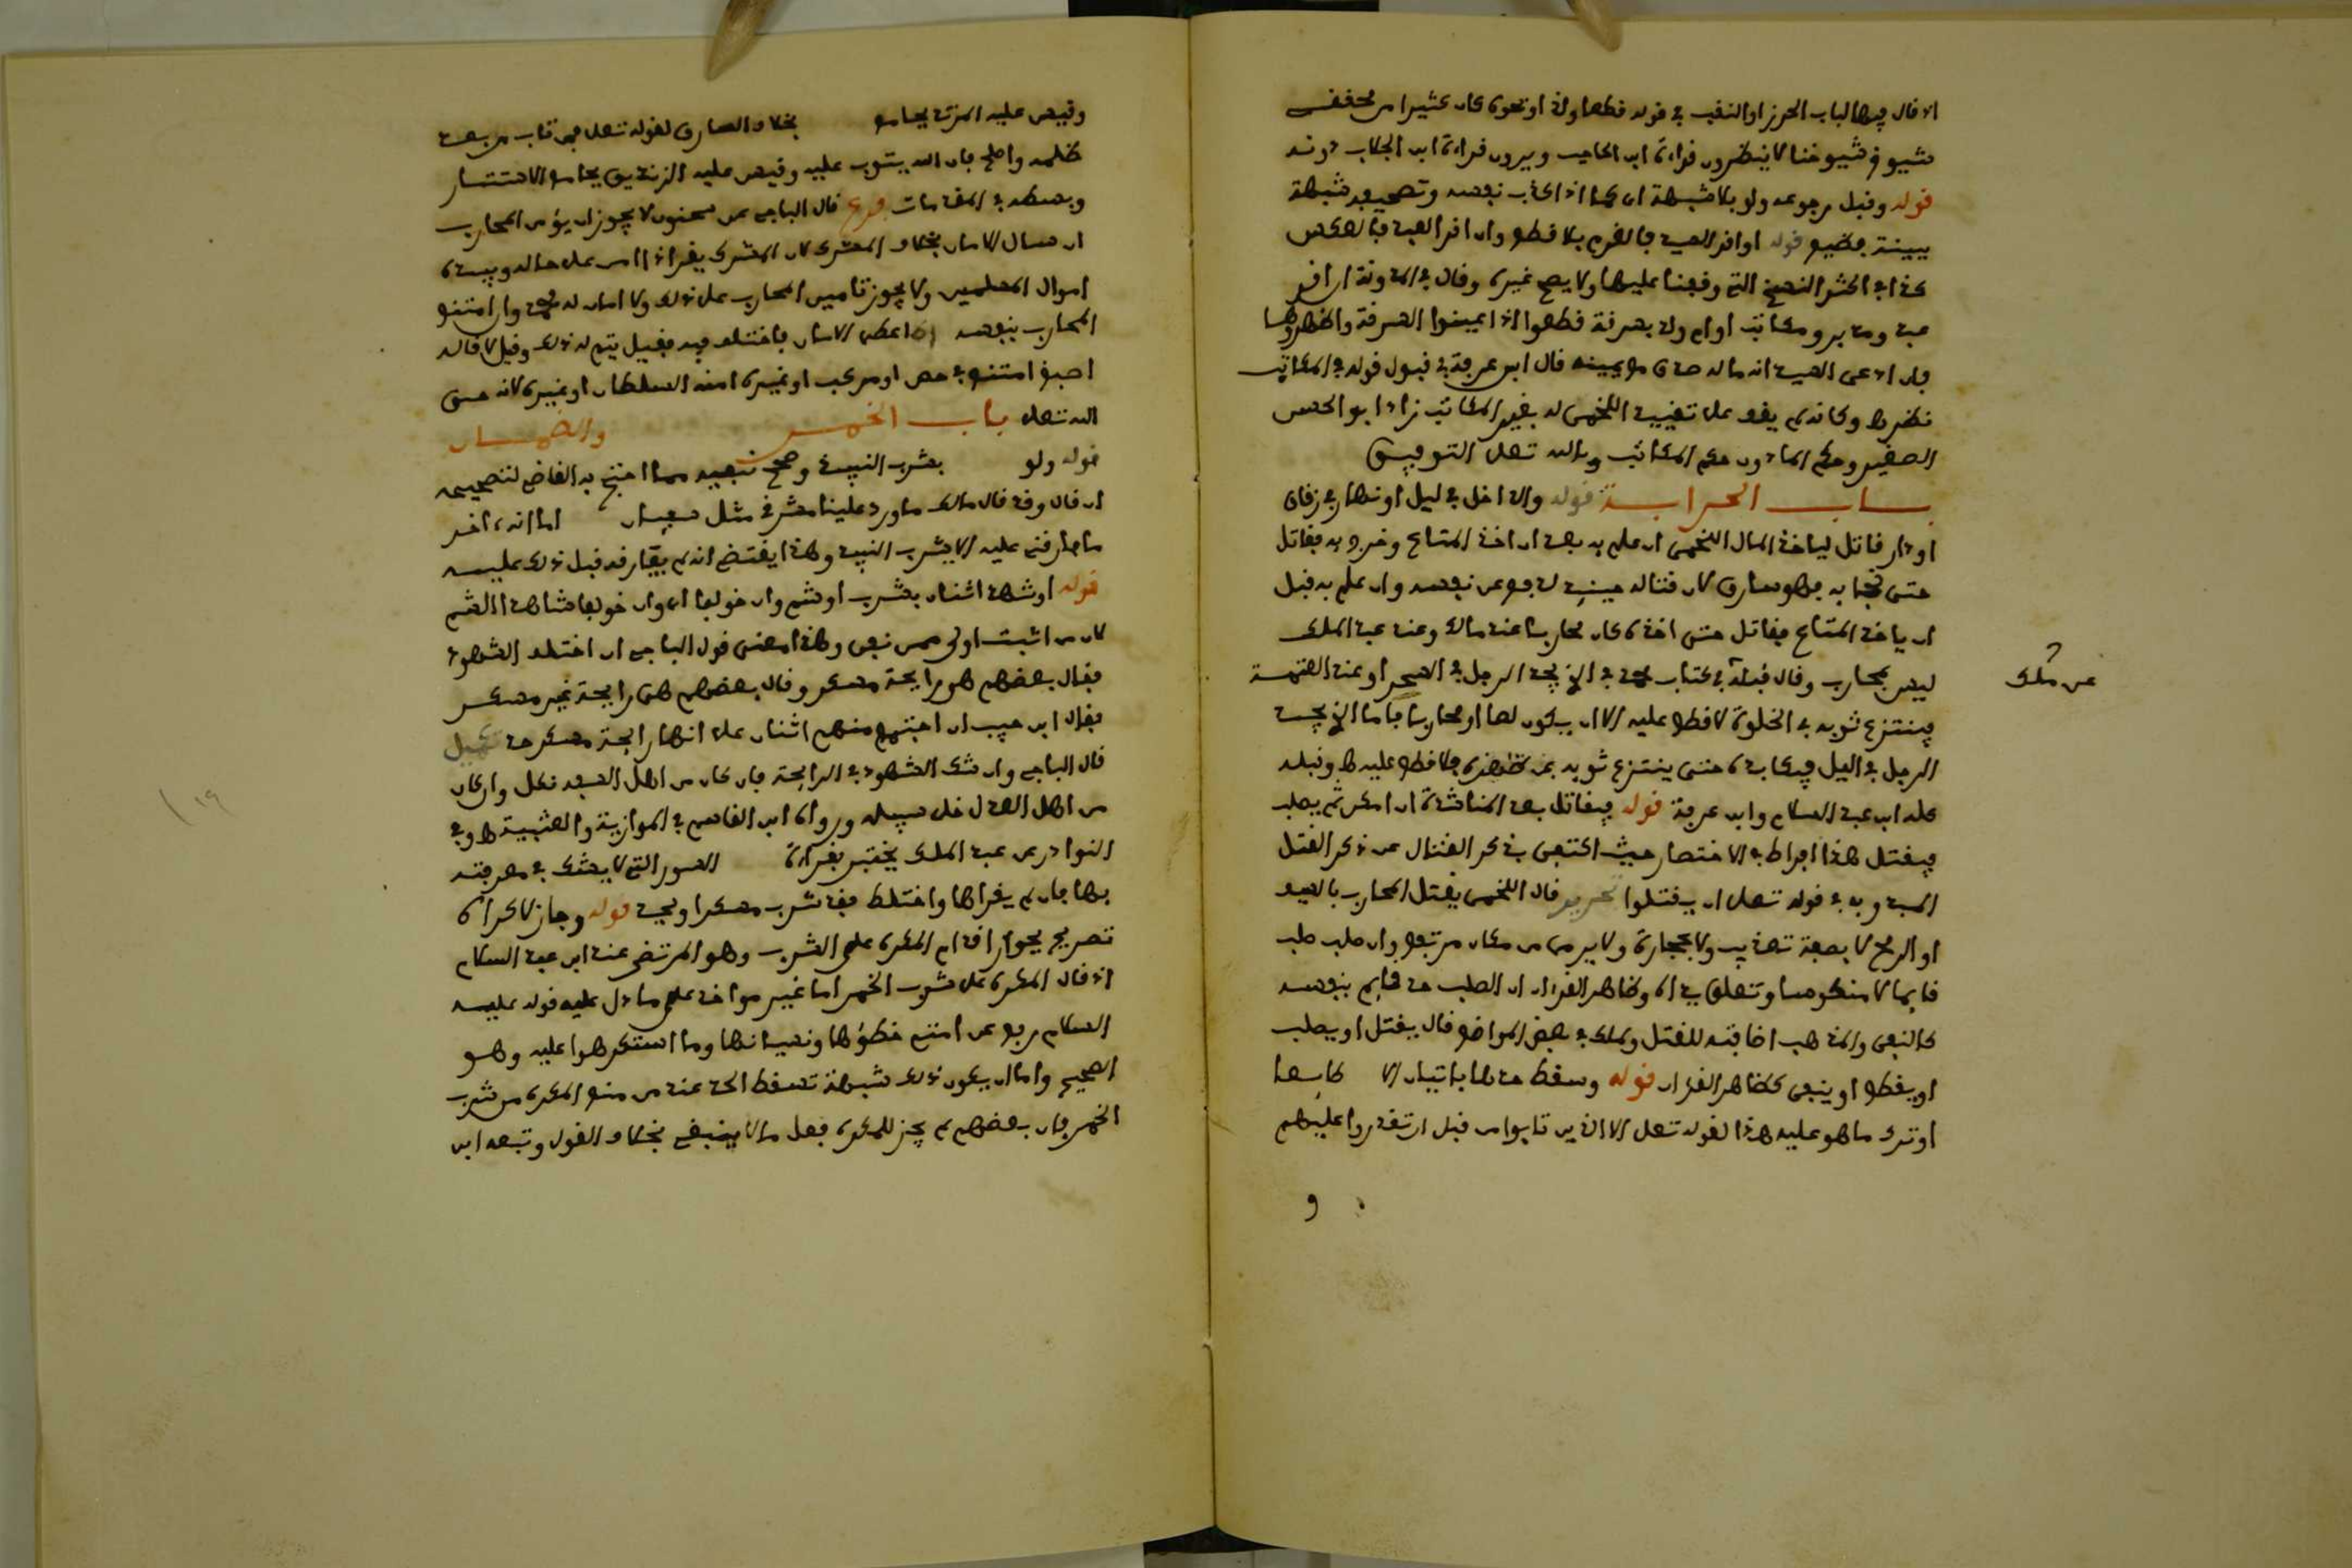 اذ قال فيها الباب الحرز او النقب في قوله قطعا ولذ او نحوه كان كثيرا من محققي
شيوخ شيوخنا لا ينظرون قراءة ابن الحاجب ويرون قراءة ابن الجلاب دونه
قوله وقبل رجوعه ولو بلا شبهة اي كما اذا اكذب نفسه
ببينة قوله او اقر العبد فالغرم بلا قطع وان اقر العبد فالعكس
كذا في اكثر النسخ التي وقفنا عليها ولا يصح غيره وقال في المدونة ان اقر
عبد ومدبر ومكاتب او ام ولد بسرقة قطعوا اذا عينوا السرقة واظهروها
فان ادعى السيد انه ماله صدق مع يمينه قال ابن عرفة في قبول قوله في المكاتب
نظر وكانه لم يقف على تقييد اللخمي له بغير المكاتب زاد ابو الحسن
الصغير وحكم الماذون حكم المكاتب وبالله تعلى التوفيق
بــاب الحرابــة قوله والداخل في ليل او نهار في زقاق
او دار قاتل لياخذ المال اللخمي ان علم به بعد ان اخذ المتاع وخرج به فقاتل
حتى نجا به فهو سارق لان قتاله حينيذ ليدفع عن نفسه وان علم به قبل
ان ياخذ المتاع فقاتل حتى اخذه كان محاربا عند مالك وعند عبد الملك
ليس بمحارب وقال قبله في كتاب محمد في الذي يجد الرجل في السحر او عند العتمة
عن ملك
فينتزع ثوبه في الخلوة لا قطع عليه الا ان يكون لصا او محاربا فاما الذي يجد
الرجل في الليل فيكابره حتى ينتزع ثوبه عن ظهره فلا قطع عليه ونقله
عنه ابن عبد السلام وابن عرفة قوله فيقاتل بعد المناشدة ان امكن ثم يصلب
فيقتل هذا افراط في الاختصار حيث اكتفى بذكر القتال عن ذكر القتل
المبدو به في قوله تعلى ان يقتلوا تحرير قال اللخمي يقتل المحارب بالسيف
او الرمح لا بصفة تعذيب ولا بحجارة ولا يرمى من مكان مرتفع وان صلب صلب
قايما لا منكوسا وتطلق يداه وظاهر القران ان الصلب حد قايم بنفسه
كالنفي والمذهب اضافته للقتل ولملك في بعض المواضع قال يقتل او يصلب
او يقطع او ينفى كظاهر القران قوله وسقط حدها باتيان الامام طايعا
او ترك ما هو عليه هذا لقوله تعلى الا الذين تابوا من قبل ان تقدروا عليهم
و
وقيس عليه المرتد بجامع بخلاف السارق لقوله تعلى فمن تاب من بعد
ظلمه واصلح فان الله يتوب عليه وقيس عليه الزنديق بجامع الاستتار
وبسطه في المقدمات فرع قال الباجي عن سحنون لا يجوز ان يؤمن المحارب
ان سال الامان بخلاف المشرك لان المشرك يقر اذا امن على حاله وبيده
اموال المسلمين ولا يجوز تامين المحارب على ذلك ولا امان له محمد وان امتنع
المحارب بنفسه اعطى الامان فاختلف فيه فقيل يتم له ذلك وقيل لا قاله
اصبغ امتنع في حصن او مركب او غيره امنه السلطان او غيره لانه حق
الله تعلى باب الخمر والضمــان
قوله ولو بشرب النبيذ وصح نفيه مما احتج به القاضي لتصحيحه
ان قال وقد قال مالك ما ورد علينا مشرقي مثل سفيان اما انه اخر
ما فارقني عليه الا يشرب النبيذ وهذا يقتضي انه لم يفارقه قبل ذلك عليه
قوله او شهد اثنان بشرب او شم وان خولفا اي وان خولفا شاهدا الشم
لان من اثبت اولى ممن نفى وهذا معنى قول الباجي ان اختلف الشهود
فقال بعضهم هو رايحة مسكر وقال بعضهم هي رايحة غير مسكر
فقال ابن حبيب ان اجتمع منهم اثنان على انها رايحة مسكر حد تكميل
قال الباجي وان شك الشهود في الرايحة فان كان من اهل السفه نكل وان كان
من اهل العدل خلي سبيله ورواه ابن القاسم في الموازية والعتبية وفي
النوادر عن عبد الملك يختبر بقراءة السور التي لا يشك في معرفته
بها فان لم يقراها واختلط فقد شرب مسكرا ويحد قوله وجاز لاكراه
تصريح بجواز اقدام المكره على الشرب وهو المرتضى عند ابن عبد السلام
اذ قال المكره على شرب الخمر اما غير مواخذ على ما دل عليه قوله عليه
السلام رفع عن امتي خطؤها ونسيانها وما استكرهوا عليه وهو
الصحيح واما ان يكون ذلك شبهة تسقط الحد عند من منع المكره من شرب
الخمر فان بعضهم لم يجز للمكره فعل ما لا ينبغي بخلاف القول وتبعه ابن
١٩